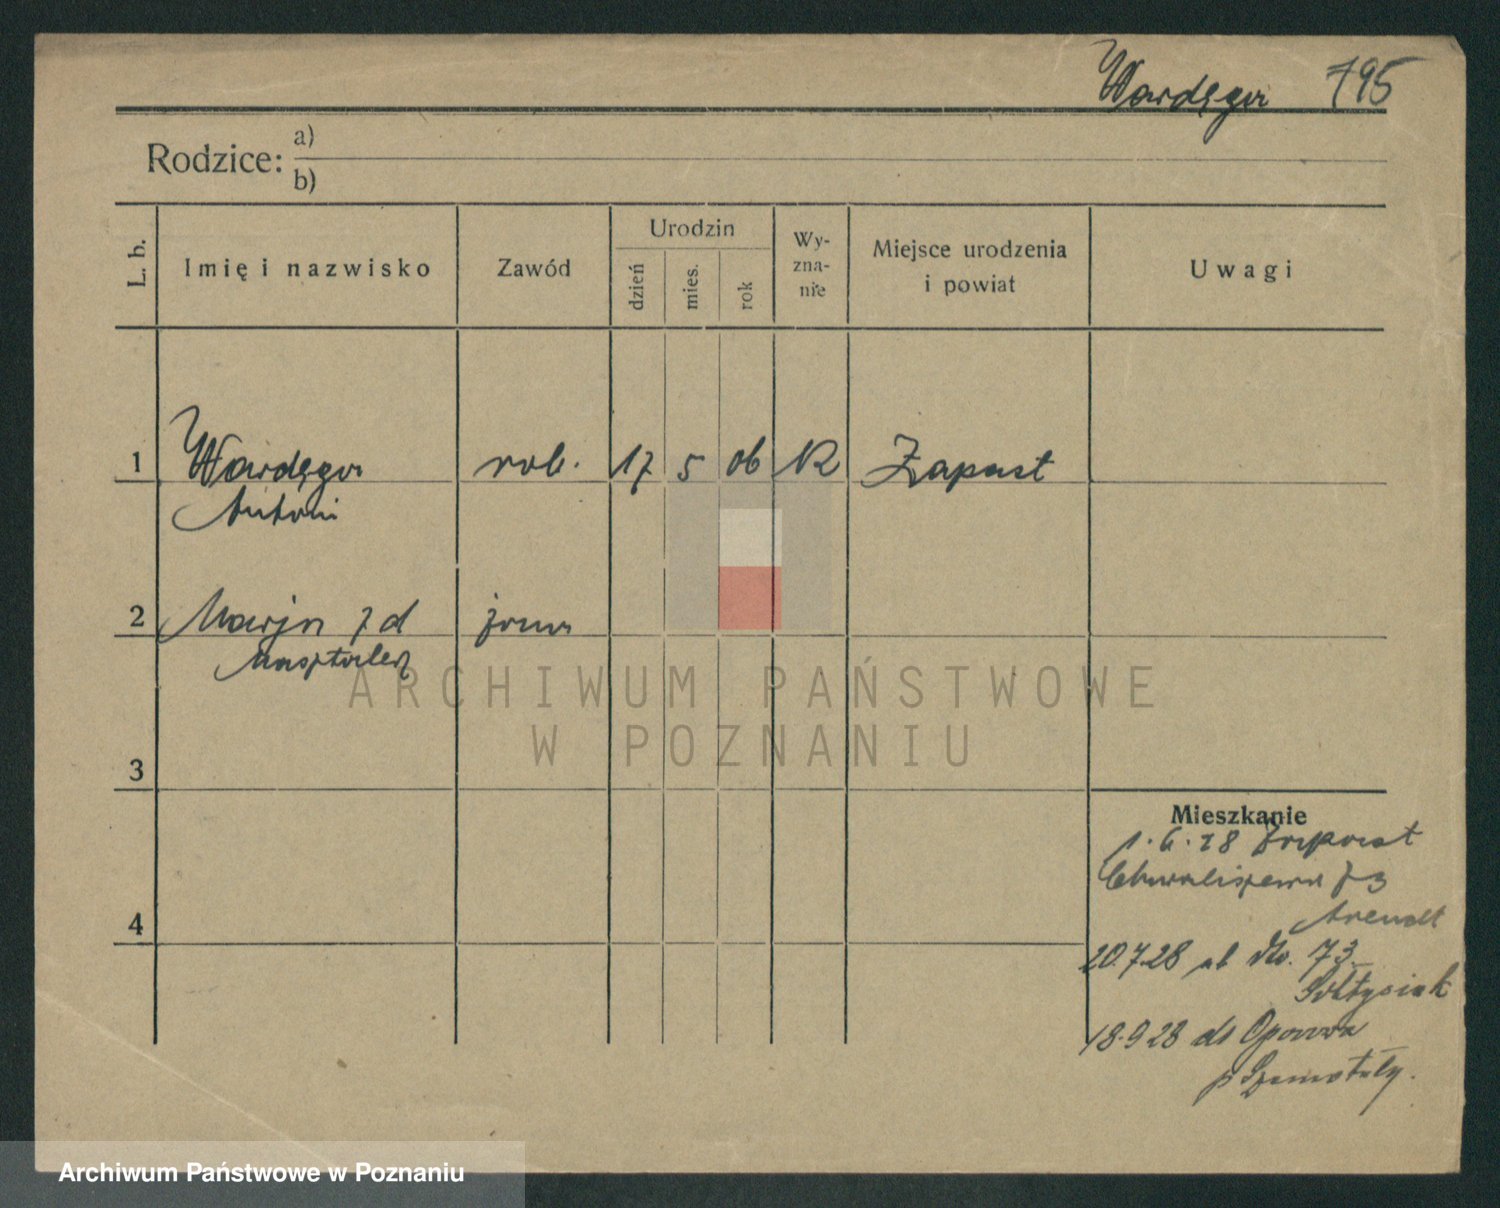 Wardęga 795
Rodzice: a)
b)
L. b. Imię i nazwisko Zawód Urodzin dzień mies. rok Wyzna-nie Miejsce urodzenia i powiat Uwagi
1 Wardęga rob. 17 5 06 R Zapust
Antoni
2 Marja z d żona
Masztalerz
ARCHIWUM PAŃSTWOWE
W POZNANIU
3
Mieszkanie
1.6.28 Zapust
Chwaliszewo 73
Arendt
4
20.7.28 Nr. 73
Sołtysiak
18.9.28 do Oporowa
p Szamotuły.
Archiwum Państwowe w Poznaniu